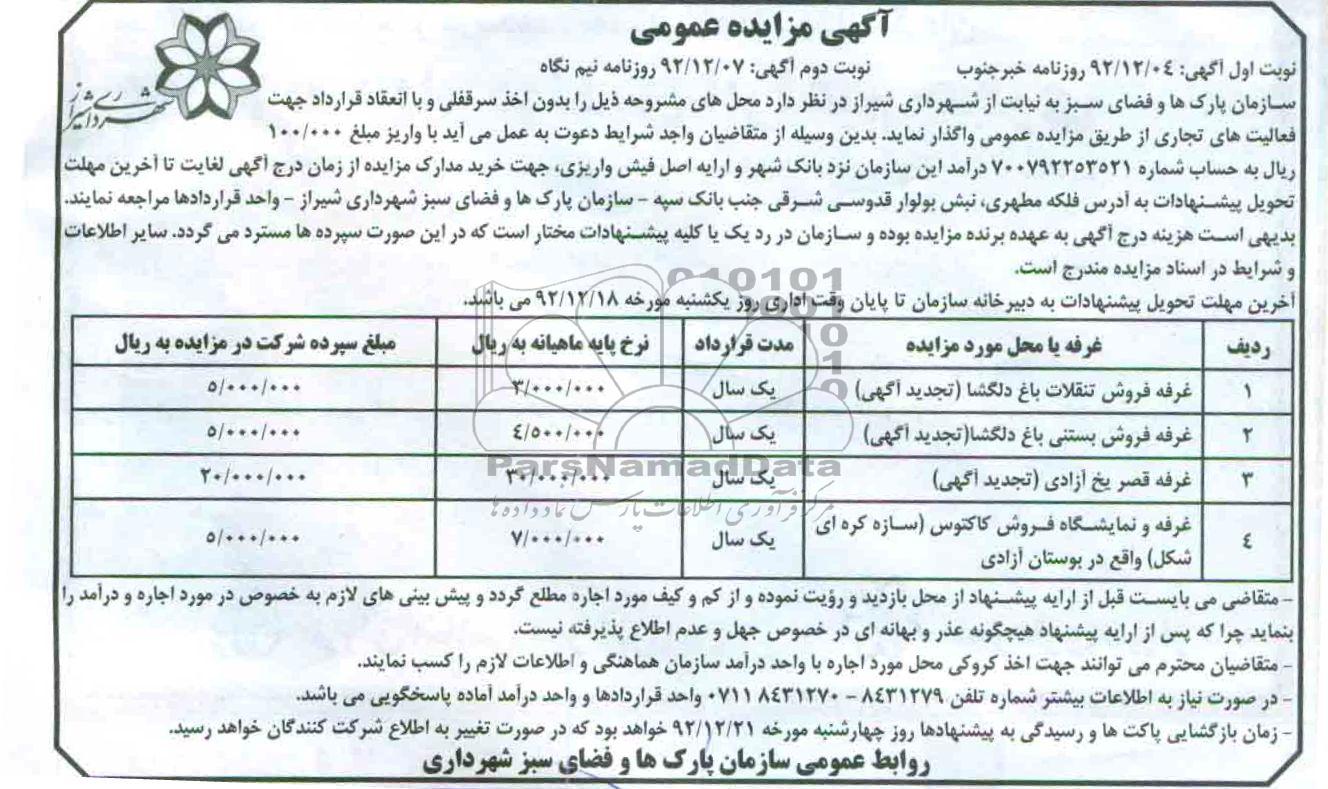 آگهی مزایده عمومی
شهرداری شیراز
نوبت اول آگهی: ۹۲/۱۲/۰٤ روزنامه خبرجنوب نوبت دوم آگهی: ۹۲/۱۲/۰۷ روزنامه نیم نگاه
سازمان پارک ها و فضای سبز به نیابت از شهرداری شیراز در نظر دارد محل های مشروحه ذیل را بدون اخذ سرقفلی و با انعقاد قرارداد جهت
فعالیت های تجاری از طریق مزایده عمومی واگذار نماید. بدین وسیله از متقاضیان واجد شرایط دعوت به عمل می آید با واریز مبلغ ۱۰۰/۰۰۰
ریال به حساب شماره ۷۰۰۷۹۲۲٥۳٥۲۱ درآمد این سازمان نزد بانک شهر و ارایه اصل فیش واریزی، جهت خرید مدارک مزایده از زمان درج آگهی لغایت تا آخرین مهلت
تحویل پیشنهادات به آدرس فلکه مطهری، نبش بولوار قدوسی شرقی جنب بانک سپه - سازمان پارک ها و فضای سبز شهرداری شیراز - واحد قراردادها مراجعه نمایند.
بدیهی است هزینه درج آگهی به عهده برنده مزایده بوده و سازمان در رد یک یا کلیه پیشنهادات مختار است که در این صورت سپرده ها مسترد می گردد. سایر اطلاعات
و شرایط در اسناد مزایده مندرج است.
آخرین مهلت تحویل پیشنهادات به دبیرخانه سازمان تا پایان وقت اداری روز یکشنبه مورخه ۹۲/۱۲/۱۸ می باشد.
ردیف غرفه یا محل مورد مزایده مدت قرارداد نرخ پایه ماهیانه به ریال مبلغ سپرده شرکت در مزایده به ریال
۱ غرفه فروش تنقلات باغ دلگشا (تجدید آگهی) یک سال ۳/۰۰۰/۰۰۰ ٥/۰۰۰/۰۰۰
۲ غرفه فروش بستنی باغ دلگشا(تجدید آگهی) یک سال ٤/٥۰۰/۰۰۰ ٥/۰۰۰/۰۰۰
۳ غرفه قصر یخ آزادی (تجدید آگهی) یک سال ۳۰/۰۰۰/۰۰۰ ۲۰/۰۰۰/۰۰۰
٤ غرفه و نمایشگاه فروش کاکتوس (سازه کره ای
شکل) واقع در بوستان آزادی یک سال ۷/۰۰۰/۰۰۰ ٥/۰۰۰/۰۰۰
ParsNamadData
مرکز فرآوری اطلاعات پارس نماد داده ها
- متقاضی می بایست قبل از ارایه پیشنهاد از محل بازدید و رؤیت نموده و از کم و کیف مورد اجاره مطلع گردد و پیش بینی های لازم به خصوص در مورد اجاره و درآمد را
بنماید چرا که پس از ارایه پیشنهاد هیچگونه عذر و بهانه ای در خصوص جهل و عدم اطلاع پذیرفته نیست.
- متقاضیان محترم می توانند جهت اخذ کروکی محل مورد اجاره با واحد درآمد سازمان هماهنگی و اطلاعات لازم را کسب نمایند.
- در صورت نیاز به اطلاعات بیشتر شماره تلفن ۸٤۳۱۲۷۹ - ۸٤۳۱۲۷۰ ۰۷۱۱ واحد قراردادها و واحد درآمد آماده پاسخگویی می باشد.
- زمان بازگشایی پاکت ها و رسیدگی به پیشنهادها روز چهارشنبه مورخه ۹۲/۱۲/۲۱ خواهد بود که در صورت تغییر به اطلاع شرکت کنندگان خواهد رسید.
روابط عمومی سازمان پارک ها و فضای سبز شهرداری